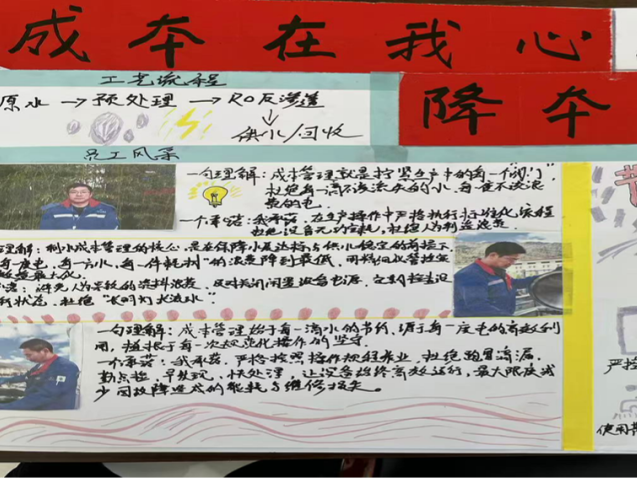 成本在我心
降本
工艺流程
原水→预处理→RO反渗透
↓
供水/回收
员工风采
一句理解：成本管理就是拧紧生产中的每一个"阀门"，
杜绝每一滴不该流失的水、每一度不该浪
费的电。
一个承诺：我承诺，在生产操作中严格执行标准化流程
理解：制水成本管理的核心，是在保障水质达标与供水稳定的前提下，
每一度电，每一方水，每一件耗材"的浪费降到最低，用精细化管控实
及时关闭闲置设备电源，定期检查设
状态，杜绝"长明灯长流水"
一句理解：成本管理始于每一滴水的节约，源于每一度电的高效利
用，植根于每一次规范化操作的坚守。
一个承诺：我承诺，严格按照操作规程作业，杜绝跑冒滴漏，
勤点检、早发现、快处理，让设备始终高效运行，最大限度减
少因故障造成的能耗与维修损失。
严控
使用